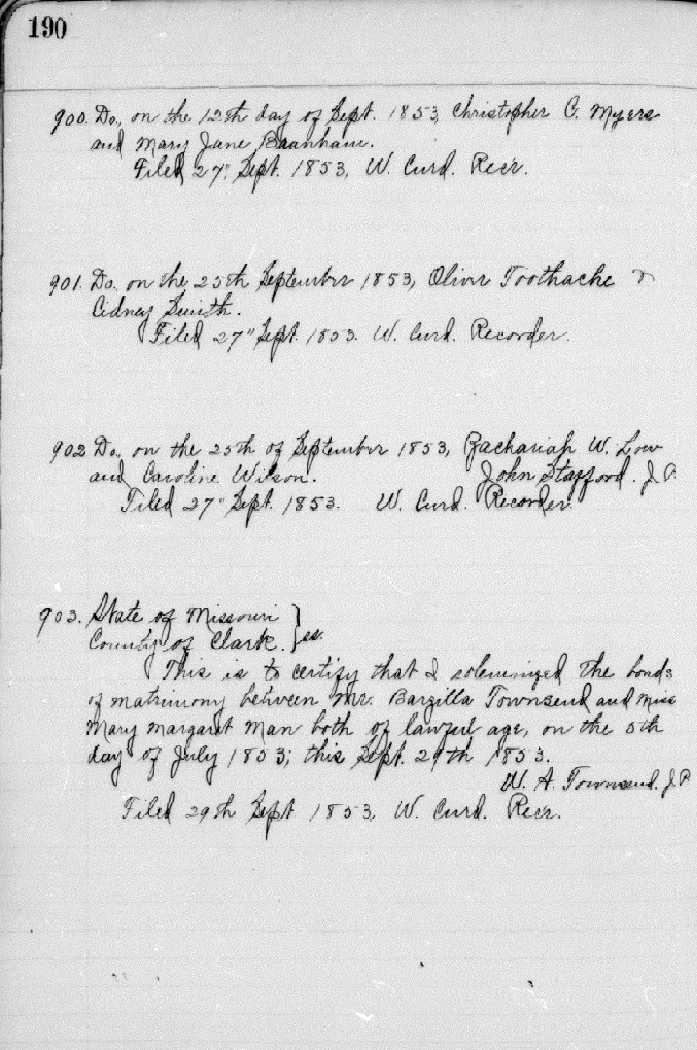 190
900. Do., on the 12th day of Sept. 1853, Christopher C. Myers
and Mary Jane Branham.
Filed 27" Sept. 1853, W. Curd. Recr.
901. Do. on the 25th September 1853, Oliver Toothache &
Cidney Smith.
Filed 27" Sept. 1853. W. Curd. Recorder.
902 Do., on the 25th of September 1853, Zachariah W. Low
and Caroline Wilson. John Stafford. J.P.
Filed 27" Sept. 1853. W. Curd. Recorder.
903. State of Missouri }
County of Clark. } ss.
This is to certify that I solemnized the bonds
of matrimony between Mr. Barzilla Townsend and Miss
Mary Margaret Man both of lawful age, on the 5th
day of July 1853; this Sept. 29th 1853.
W. A. Townsend. J.P.
Filed 29th Sept. 1853, W. Curd. Recr.